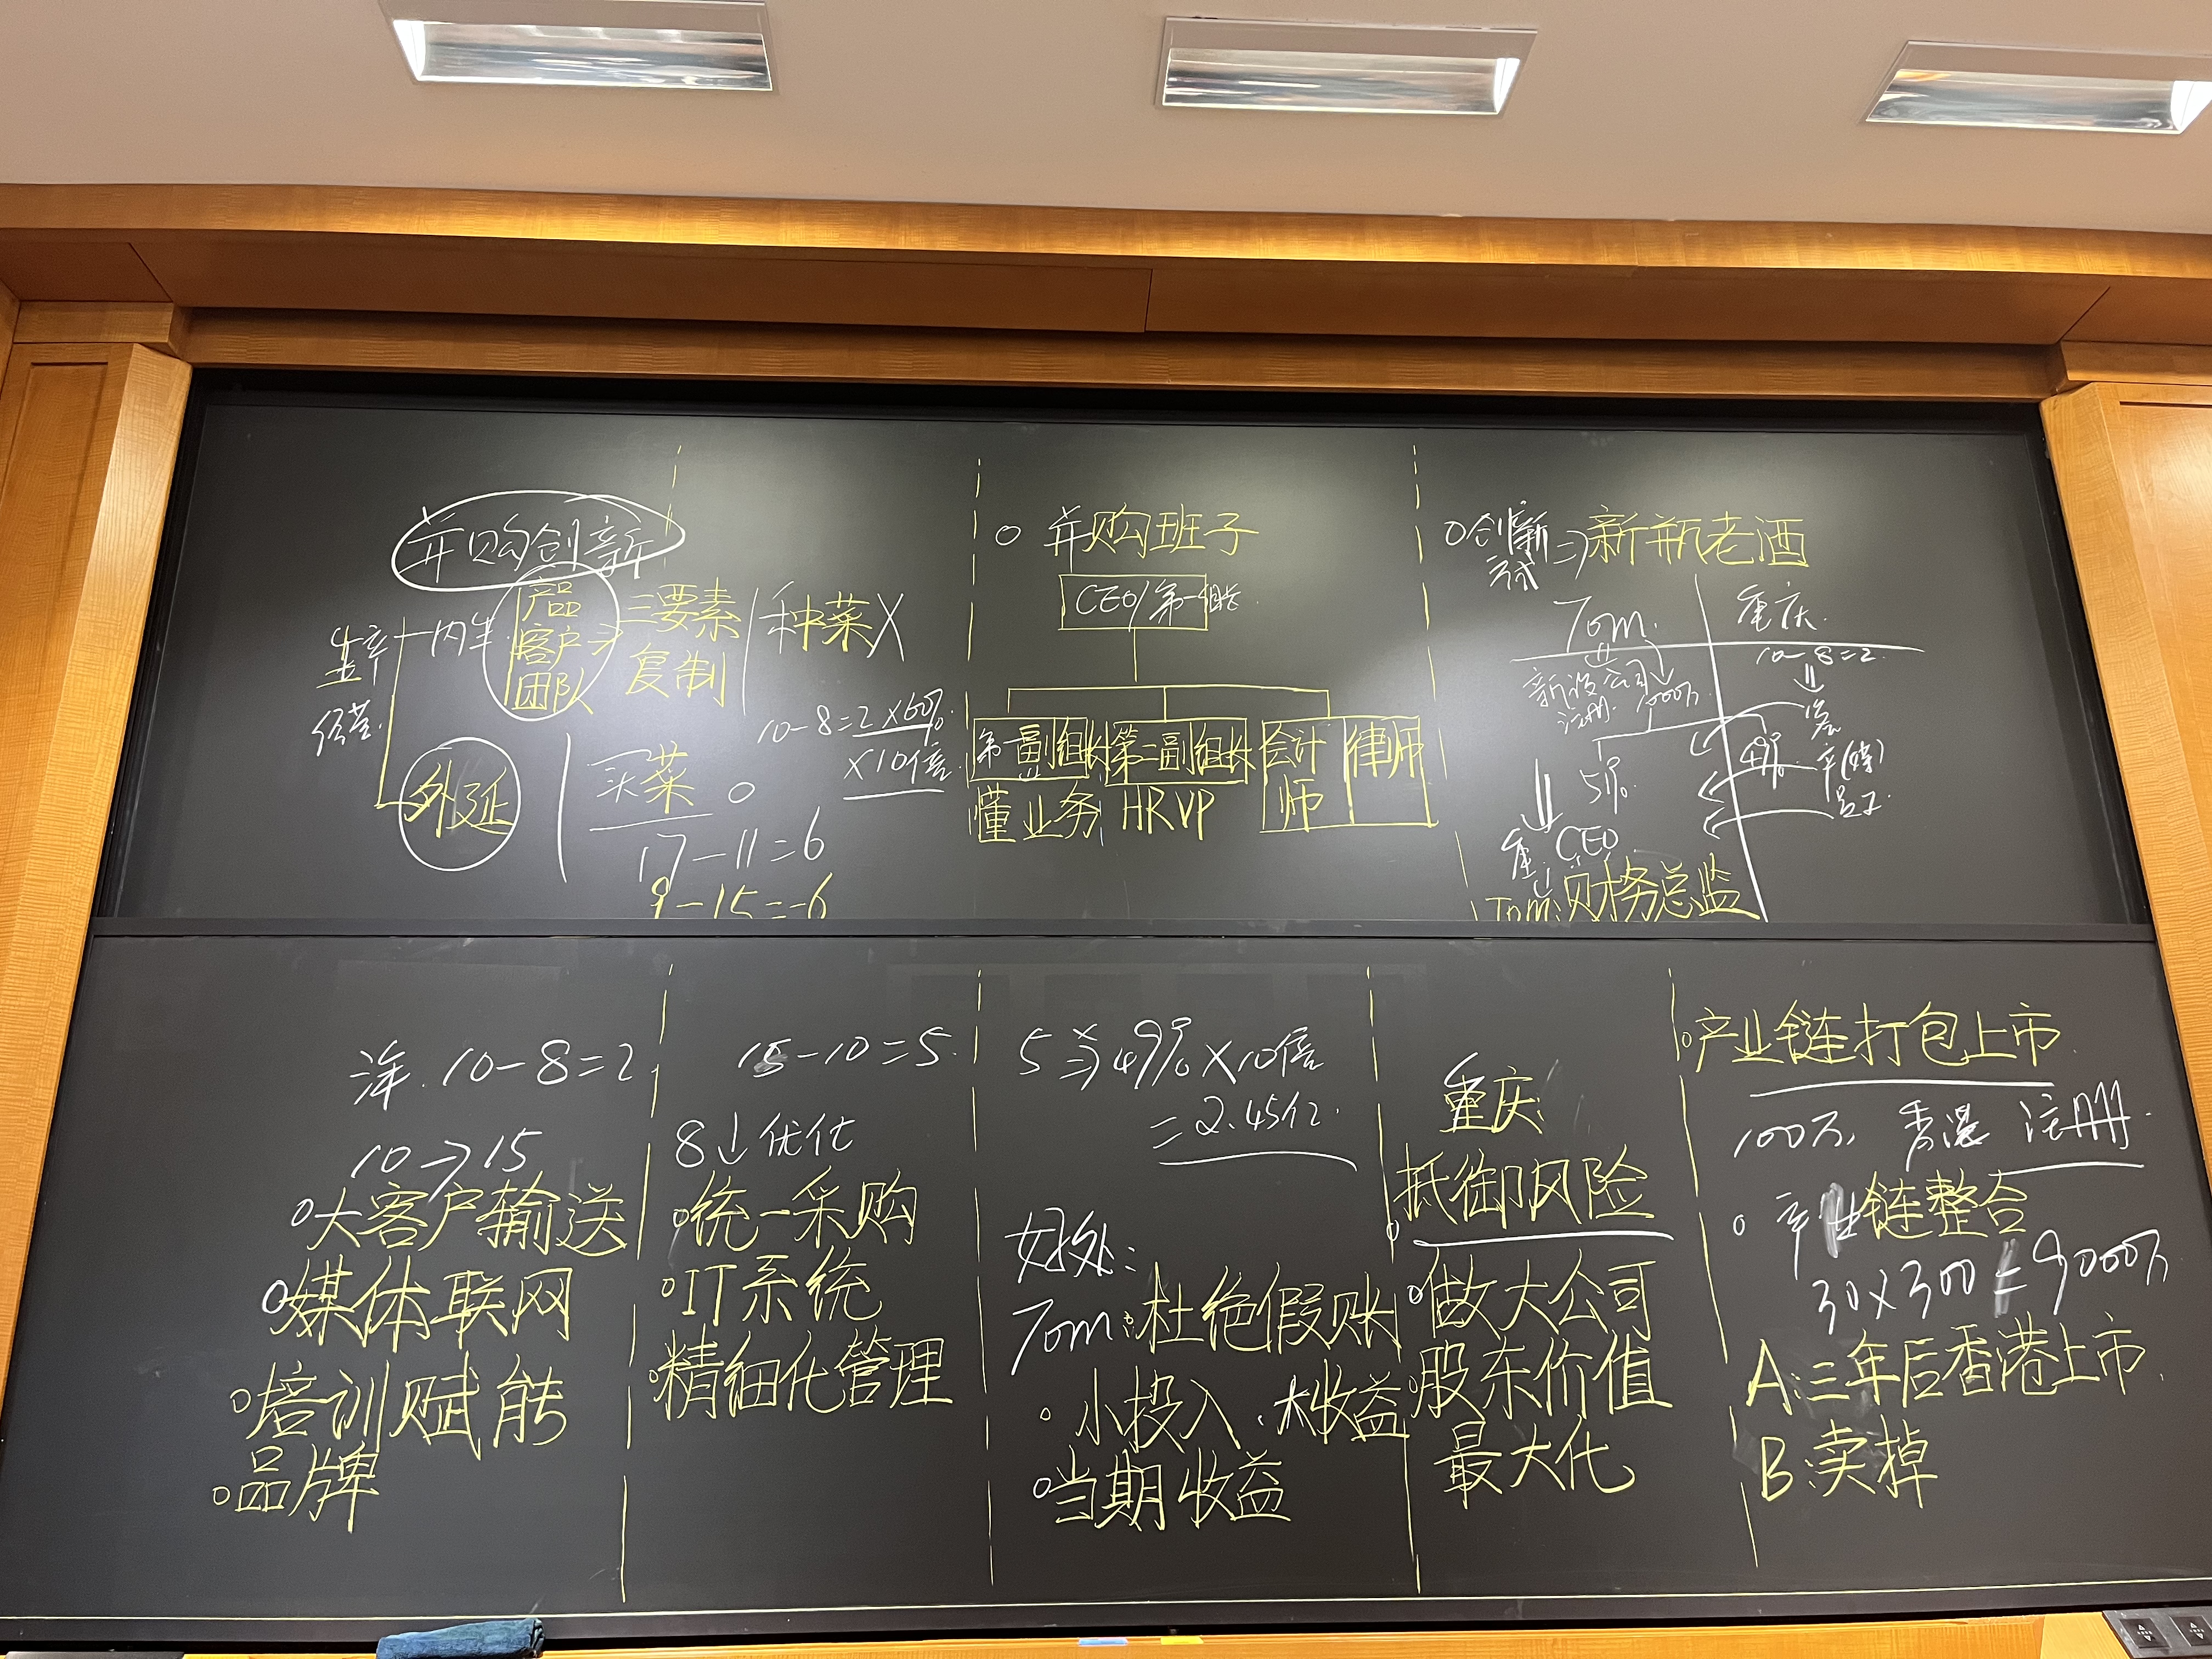 并购创新
生产
经营
内生
产品
客户
团队
三要素
复制
种菜 X
10-8=2×60%
×10倍
外延
买菜 O
17-11=6
9-15=-6
并购班子
CEO/第一组长
第一副组长
懂业务
第二副组长
HRVP
会计师
律师
创新
方式
=>新瓶老酒
Tom
重庆
新设公司
注册 1000万
10-8=2
51%
49%
重: CEO
Tom: 财务总监
10-8=2
10→15
大客户输送
媒体联网
培训赋能
品牌
15-10=5
8↓优化
统一采购
IT系统
精细化管理
5×49%×10倍
=2.45亿
好处:
Tom:杜绝假账
小投入.大收益
当期收益
重庆
抵御风险
做大公司
股东价值
最大化
产业链打包上市
100万 香港 注册
产业链整合
30×300=9000万
A:三年后香港上市
B:卖掉